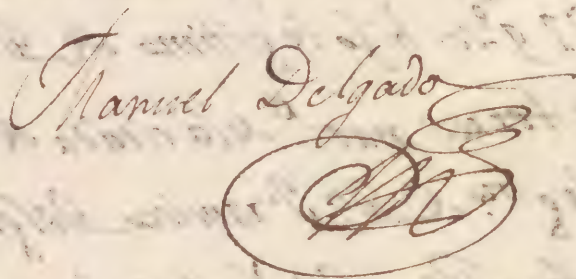 Manuel Delgado